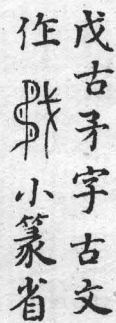 戊古矛字古文
作 小篆省